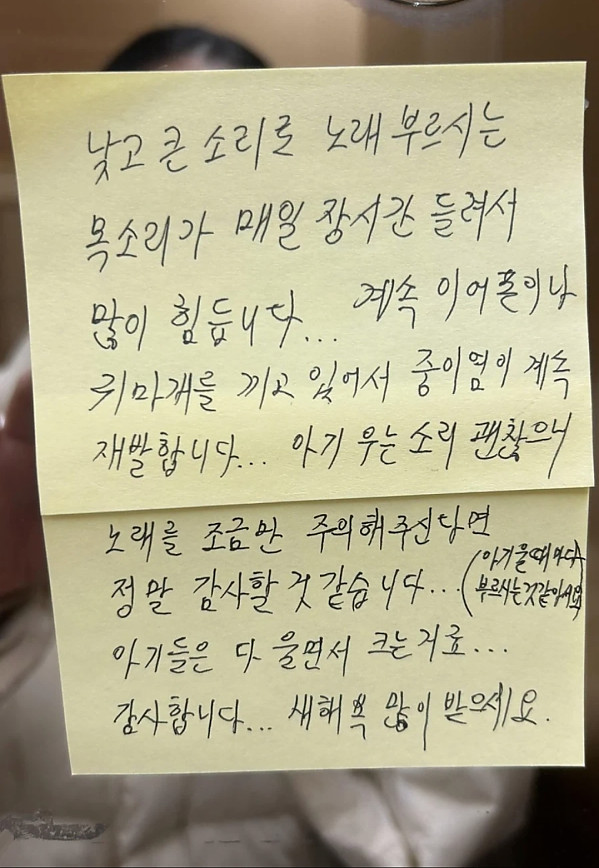 낮고 큰 소리로 노래 부르시는
목소리가 매일 장시간 들려서
많이 힘듭니다... 계속 이어폰이나
귀마개를 끼고 있어서 중이염이 계속
재발합니다... 아기 우는 소리 괜찮으니
노래를 조금만 주의해주신다면
정말 감사할 것 같습니다...(아기 울때마다
부르시는것같아서요)
아기들은 다 울면서 크는거죠...
감사합니다... 새해 복 많이 받으세요.